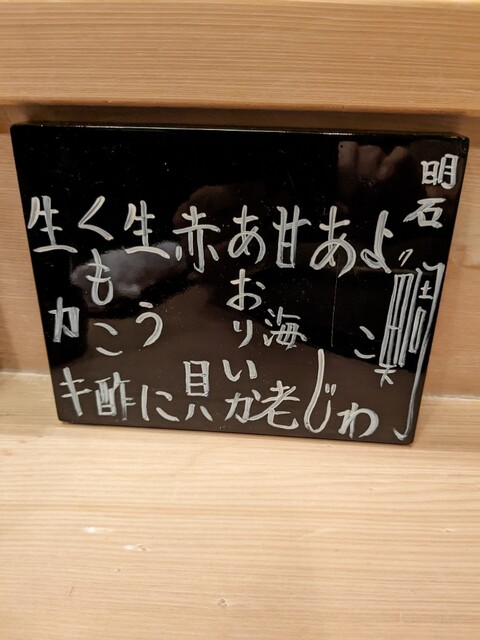 明石鯛
よこわ
あじ
甘海老
あおりいか
赤貝
生うに
くもこ酢
生カキ